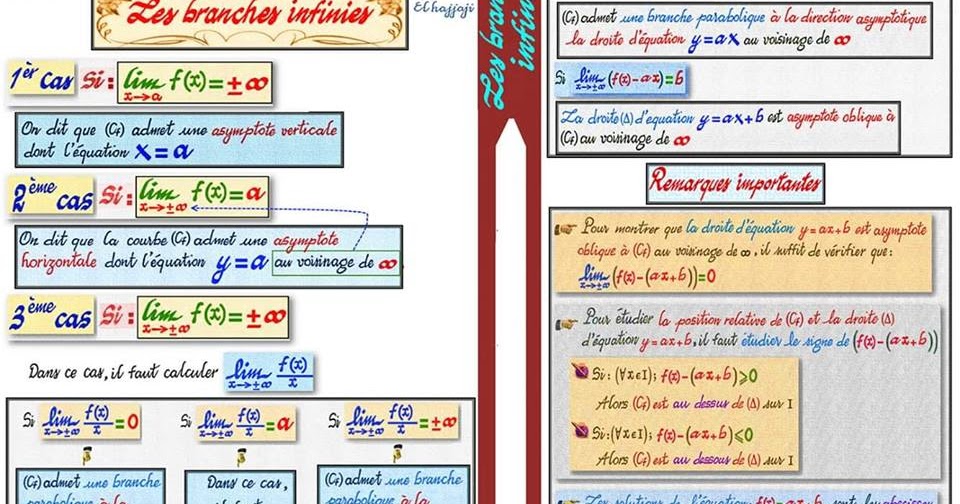 Les branches infinies
El hajjaji
1er Cas Si : lim f(x) = ± ∞
x→a
On dit que (Cf) admet une asymptote verticale
dont l'équation x = a
2ème cas Si : lim f(x) = a
x→±∞
On dit que la courbe (Cf) admet une asymptote
horizontale dont l'équation y = a au voisinage de ∞
3ème cas Si : lim f(x) = ± ∞
x→±∞
Dans ce cas, il faut calculer lim f(x)/x
x→±∞
Si lim f(x)/x = 0
x→±∞
(Cf) admet une branche
parabolique à la
Si lim f(x)/x = a
x→±∞
Dans ce cas,
Si lim f(x)/x = ±∞
x→±∞
(Cf) admet une branche
parabolique à la
Les bran
infin
(Cf) admet une branche parabolique à la direction asymptotique
la droite d'équation y = ax au voisinage de ∞
Si lim (f(x)-ax) = b
x→±∞
La droite (Δ) d'équation y = ax+b est asymptote oblique à
(Cf) au voisinage de ∞
Remarques importantes
Pour montrer que la droite d'équation y = ax+b est asymptote
oblique à (Cf) au voisinage de ∞, il suffit de vérifier que :
lim (f(x)-(ax+b)) = 0
x→±∞
Pour étudier la position relative de (Cf) et la droite (Δ)
d'équation y = ax+b, il faut étudier le signe de (f(x)-(ax+b))
Si : (∀x∈I) ; f(x)-(ax+b) ⩾ 0
Alors (Cf) est au dessus de (Δ) sur I
Si : (∀x∈I) ; f(x)-(ax+b) ⩽ 0
Alors (Cf) est au dessous de (Δ) sur I
Les solutions de l'équation f(x) = ax+b sont les abscisses